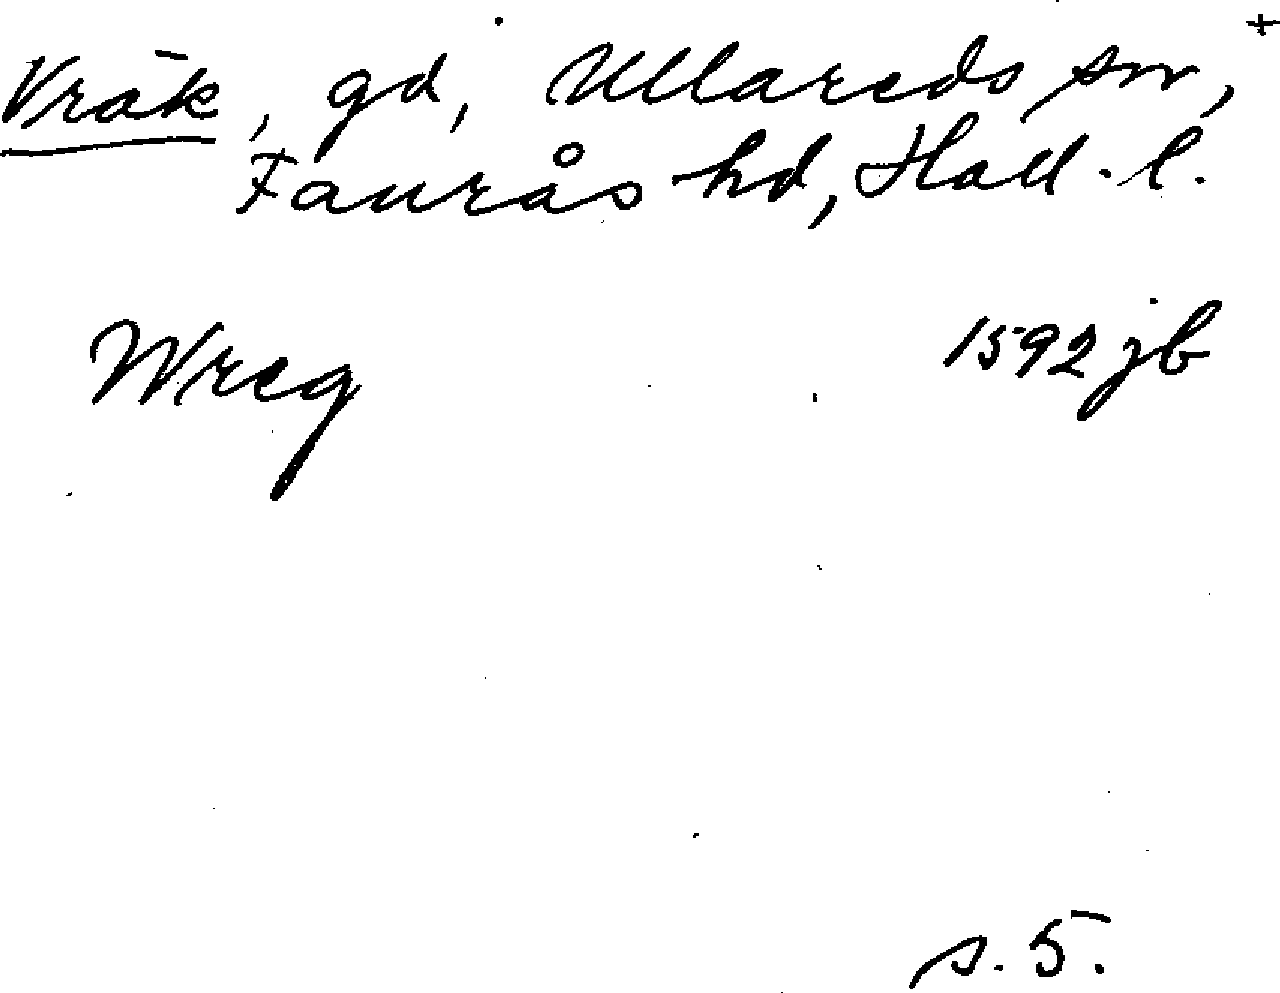 +
Vräk, gd, Ullareds sn,
Faurås hd, Hall. l.
Wreg 1592 jb
s. 5.